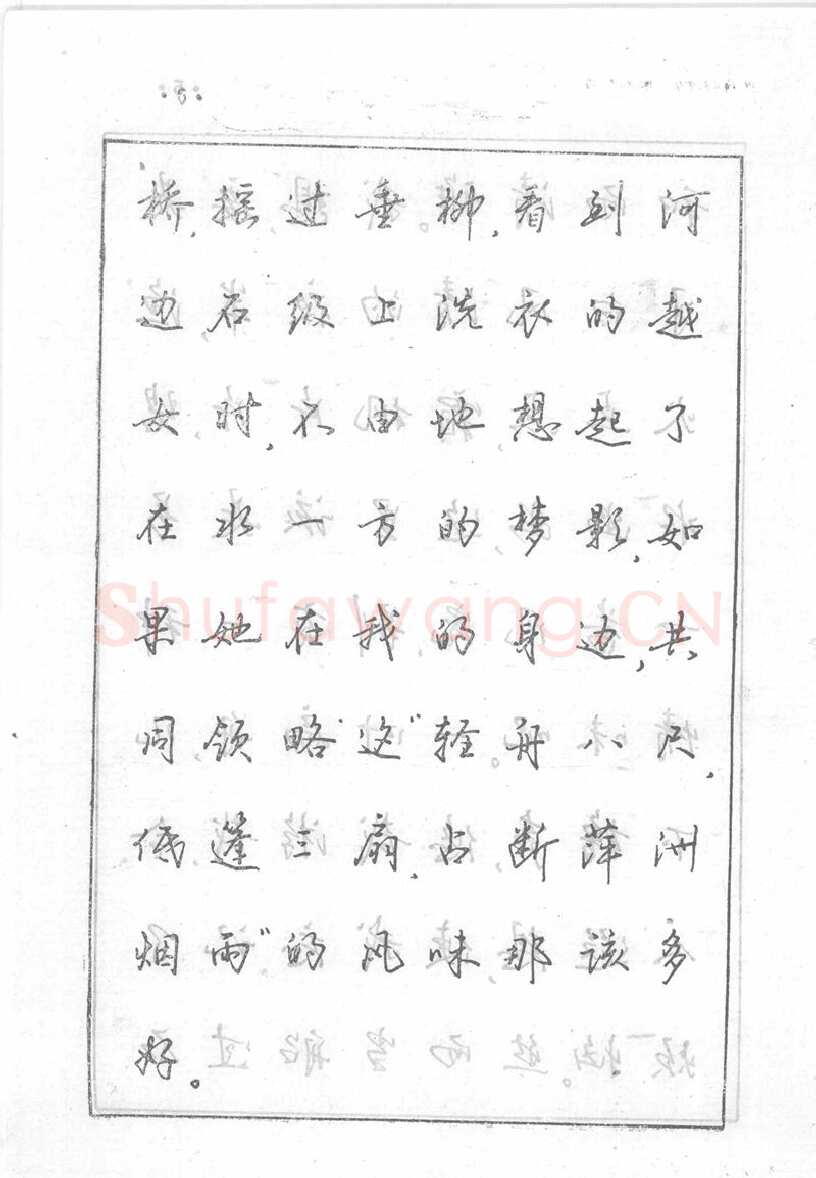 桥,摇过垂柳,看到河
边石级上洗衣的越
女时,不由地想起了
在水一方的梦影,如
果她在我的身边,共
同领略这"轻舟八尺,
低篷三扇,占断萍洲
烟雨"的风味那该多
好。
Shufawang.CN